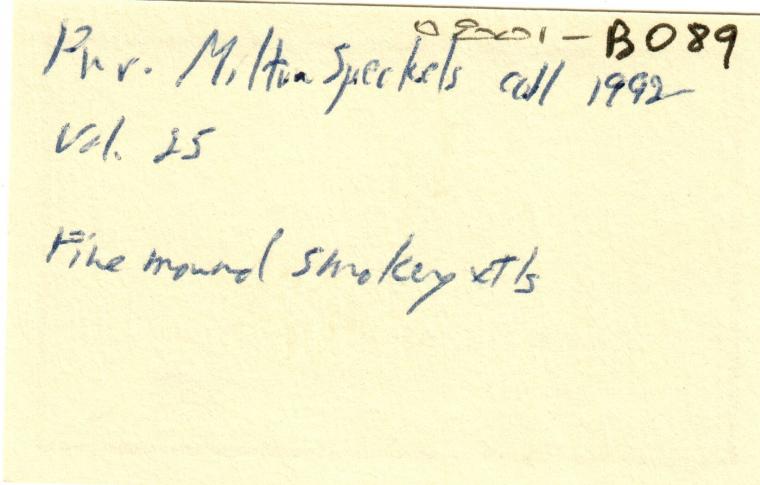 - B089
Prv. Milton Speckels coll 1992
Val. 25
Fine mound smokey xtls